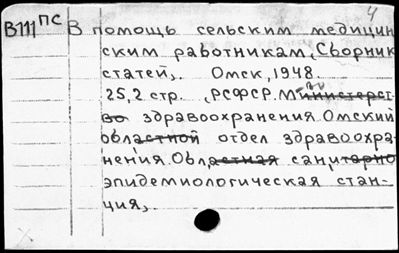 4
В111 ПС В помощь сельским медицин
ским работникам, Сборник
статей,. Омск, 1948.
25,2 стр. , РСФСР. Министерст-
во здравоохранения. Омский
областной отдел здравоохра-
нения. Областная санитарно
эпидемиологическая стан-
ция,.